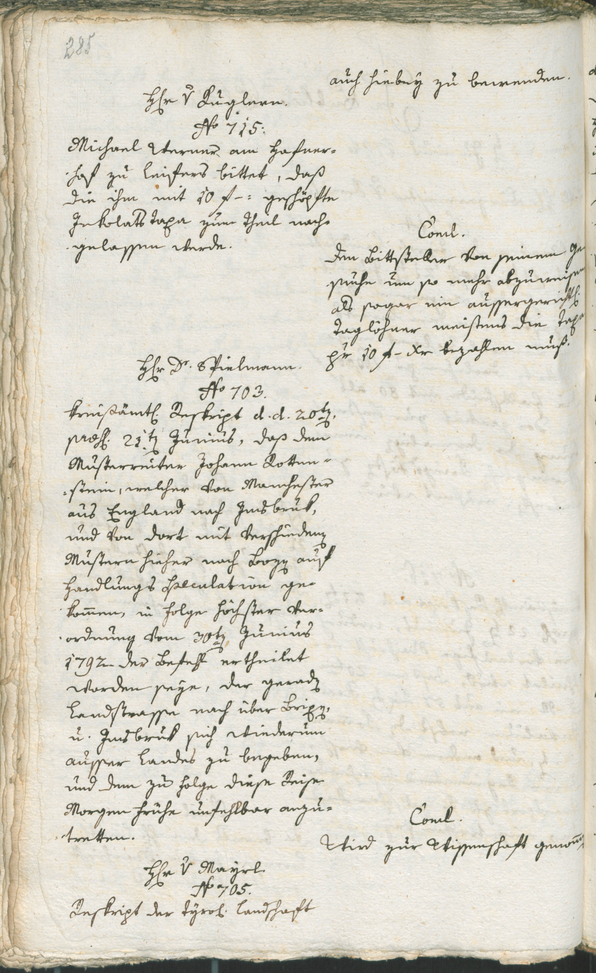 285
auch hiebey zu bewenden.
Hr v Kuglern.
No 715.
Michael Werner am Hafner-
hof zu Leifers bittet, daß
die ihm mit 10 f: geschöpfte
Inkolats Taxa zum Theil nach-
gelassen werde.
Concl.
Den Bittsteller von seinem Ge-
suche um so mehr abzuweisen
als sogar ein aussergerichtl.
Taglöhner meistens die Taxe
pr 10 f - xr bezahlen muß.
Hr Dr. Spielmann.
No 703.
Kreisämtl. Reskript d. d. 20ten,
praes. 21ten Junius, daß dem
Musterreuter Johann Rotten-
stein, welcher von Manchester
aus England nach Insbruk,
und von dort mit verschiedenen
Mustern hieher nach Bozen auf
Handlungs Speculation ge-
kommen, in Folge höchster Ver-
ordnung vom 30ten Junius
1792 der Befehl ertheilet
worden seye, der geraden
Landstrasse nach über Brixen,
u. Insbruk sich wiederum
ausser Landes zu begeben,
und dem zu Folge diese Reise
Morgen frühe unfehlbar anzu-
tretten.
Concl.
Wird zur Wissenschaft genommen
Hr v Mayrl
No 705.
Reskript der tyrol. Landschaft